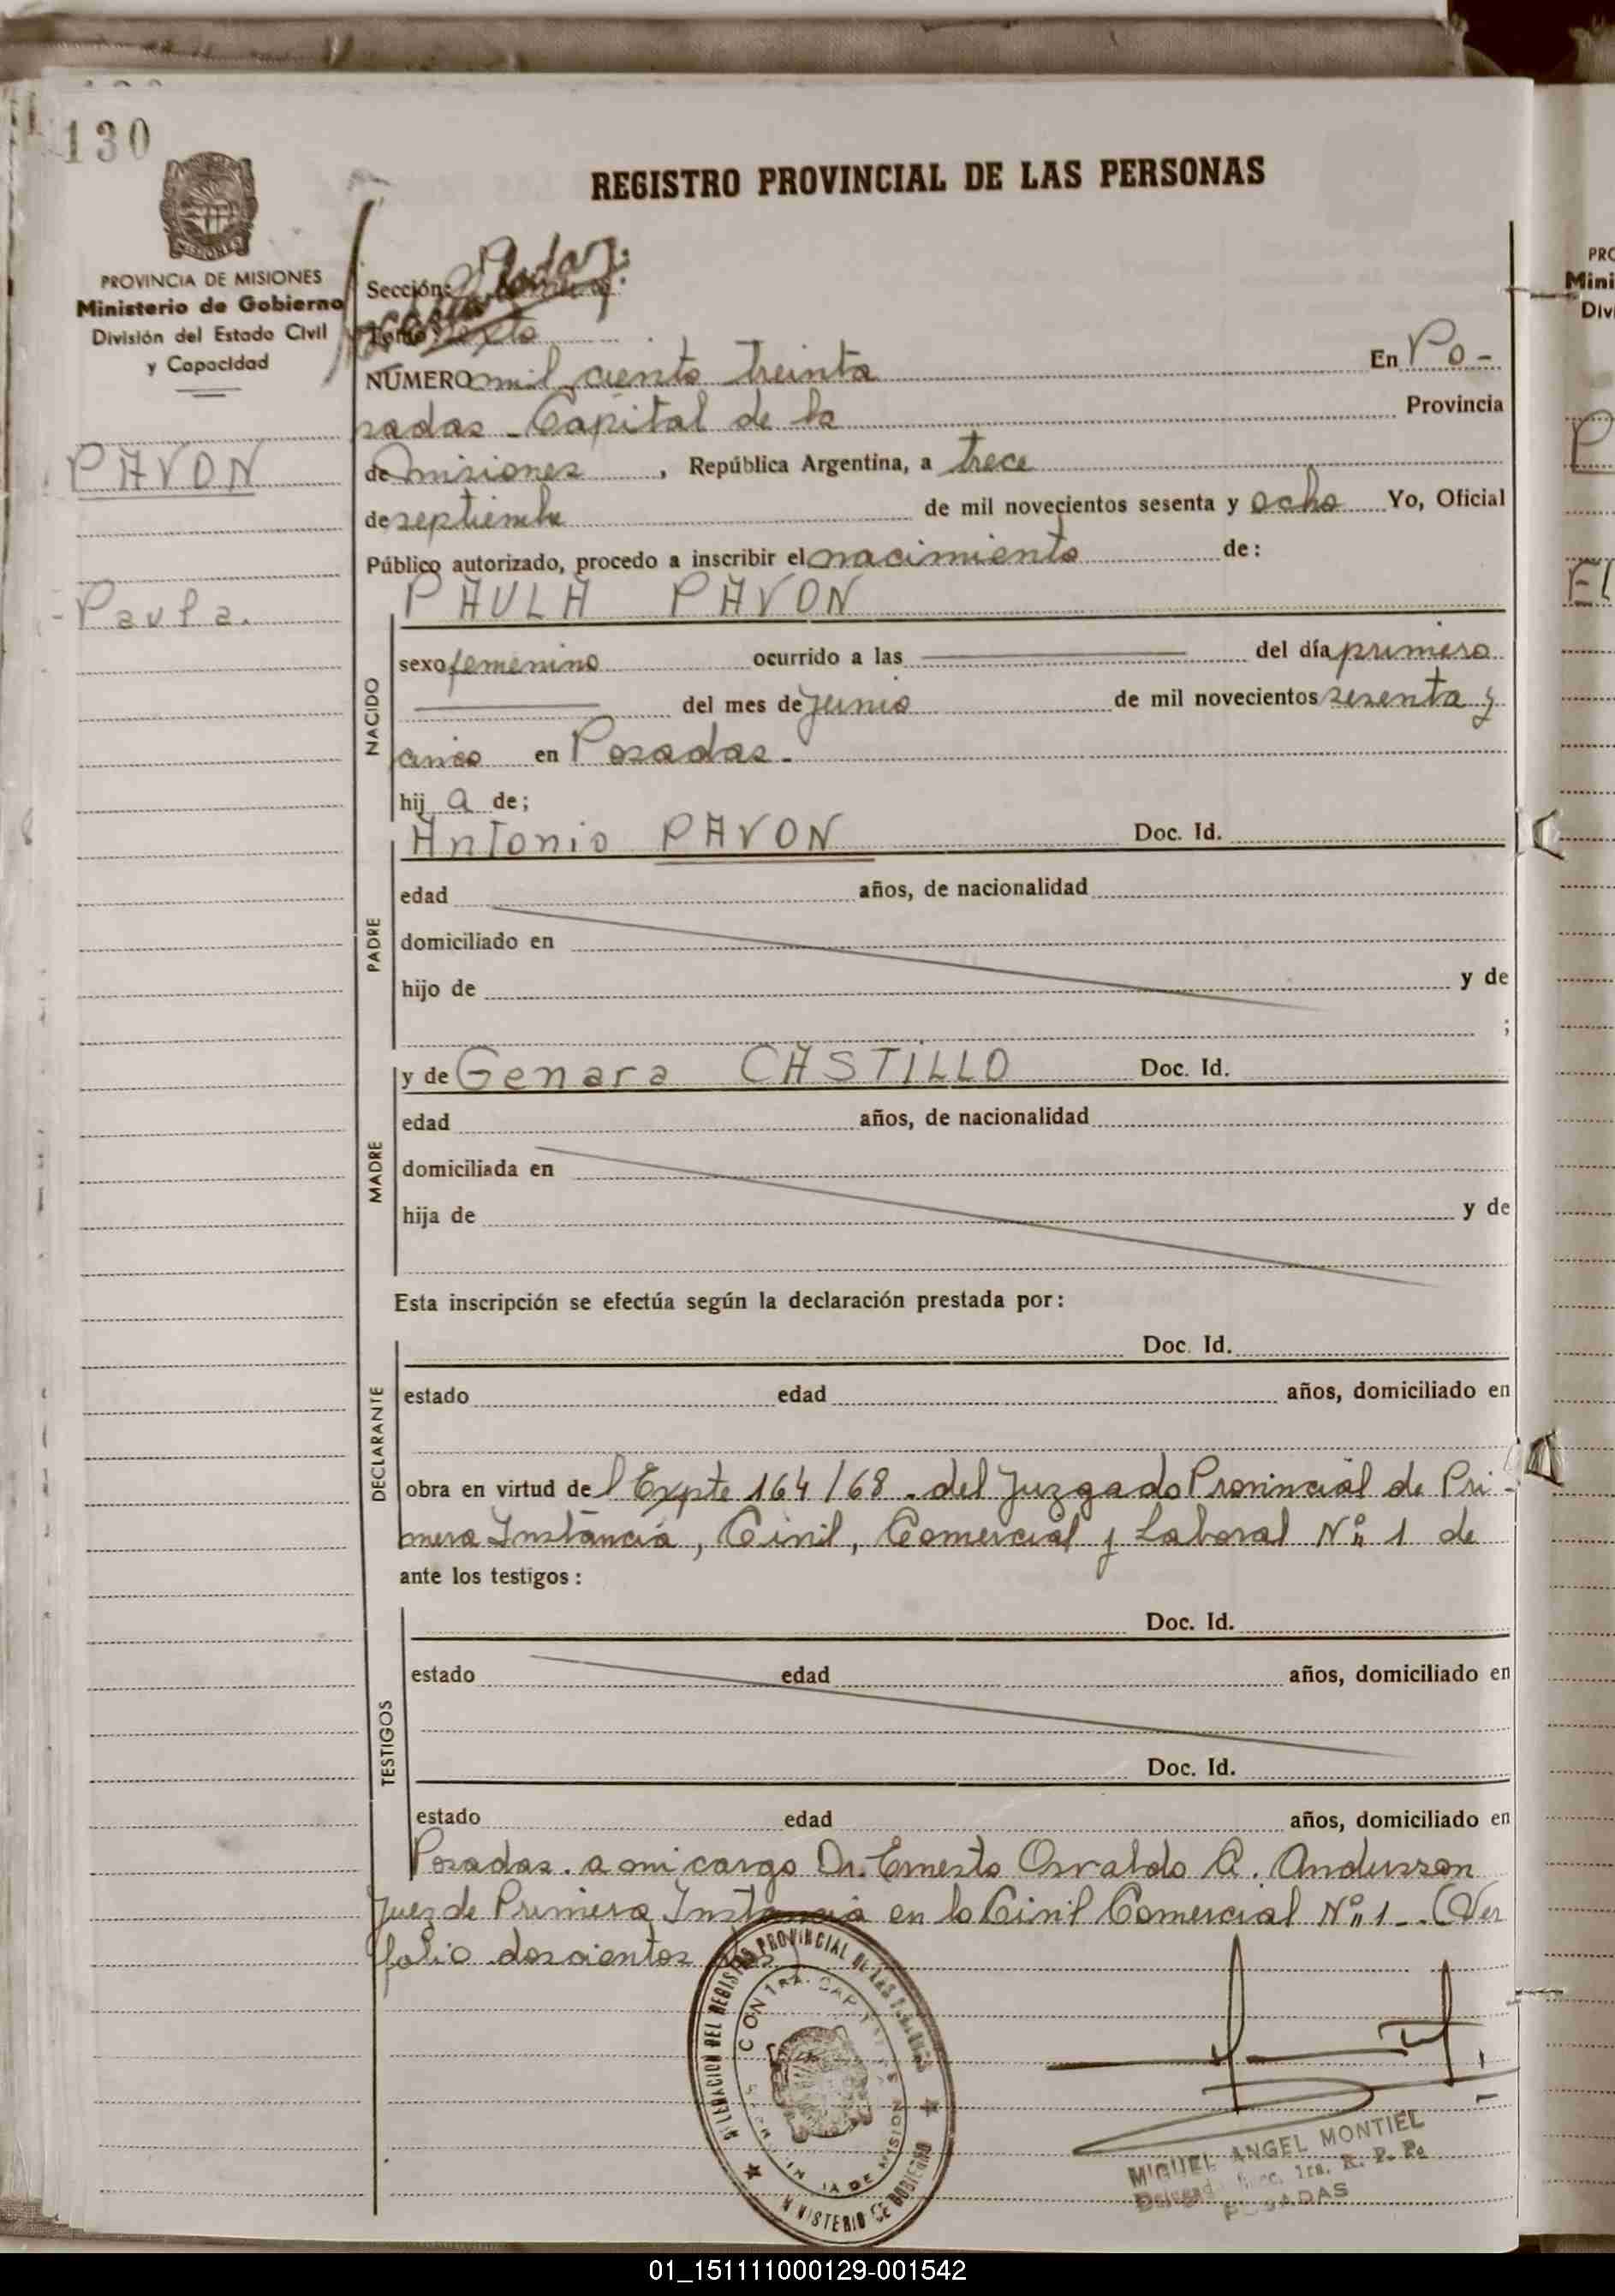 130
REGISTRO PROVINCIAL DE LAS PERSONAS
MISIONES
PROVINCIA DE MISIONES
Ministerio de Gobierno
División del Estado Civil
y Capacidad
Sección: Posadas
Tomo sexto
NUMERO mil ciento treinta En Po-
sadas - Capital de la Provincia
PAVON
de misiones, República Argentina, a trece
de septiembre de mil novecientos sesenta y ocho Yo, Oficial
Público autorizado, procedo a inscribir el nacimiento de:
Paula.
PAULA PAVON
NACIDO
sexo femenino ocurrido a las del día primero
del mes de junio de mil novecientos sesenta y
cinco en Posadas.-
hij a de;
PADRE
Antonio PAVON Doc. Id.
edad años, de nacionalidad
domiciliado en
hijo de y de
;
MADRE
y de Genara CASTILLO Doc. Id.
edad años, de nacionalidad
domiciliada en
hija de y de
Esta inscripción se efectúa según la declaración prestada por:
DECLARANTE
Doc. Id.
estado edad años, domiciliado en
obra en virtud del Expte 164/68 - del Juzgado Provincial de Pri-
mera Instancia, Civil, Comercial y Laboral Nº 1 de
ante los testigos:
TESTIGOS
Doc. Id.
estado edad años, domiciliado en
Doc. Id.
estado edad años, domiciliado en
Posadas. a mi cargo Dr. Ernesto Osvaldo A. Andersson
Juez de Primera Instancia en lo Civil Comercial Nº 1 -. (Ver
folio doscientos
DELEGACION DEL REGISTRO PROVINCIAL DE LAS PERSONAS
MINISTERIO DE GOBIERNO
MIGUEL ANGEL MONTIEL
Delegado Secc. 1ra. R. P. P.
POSADAS
PRO
Mini
Div
P
El
01_151111000129-001542